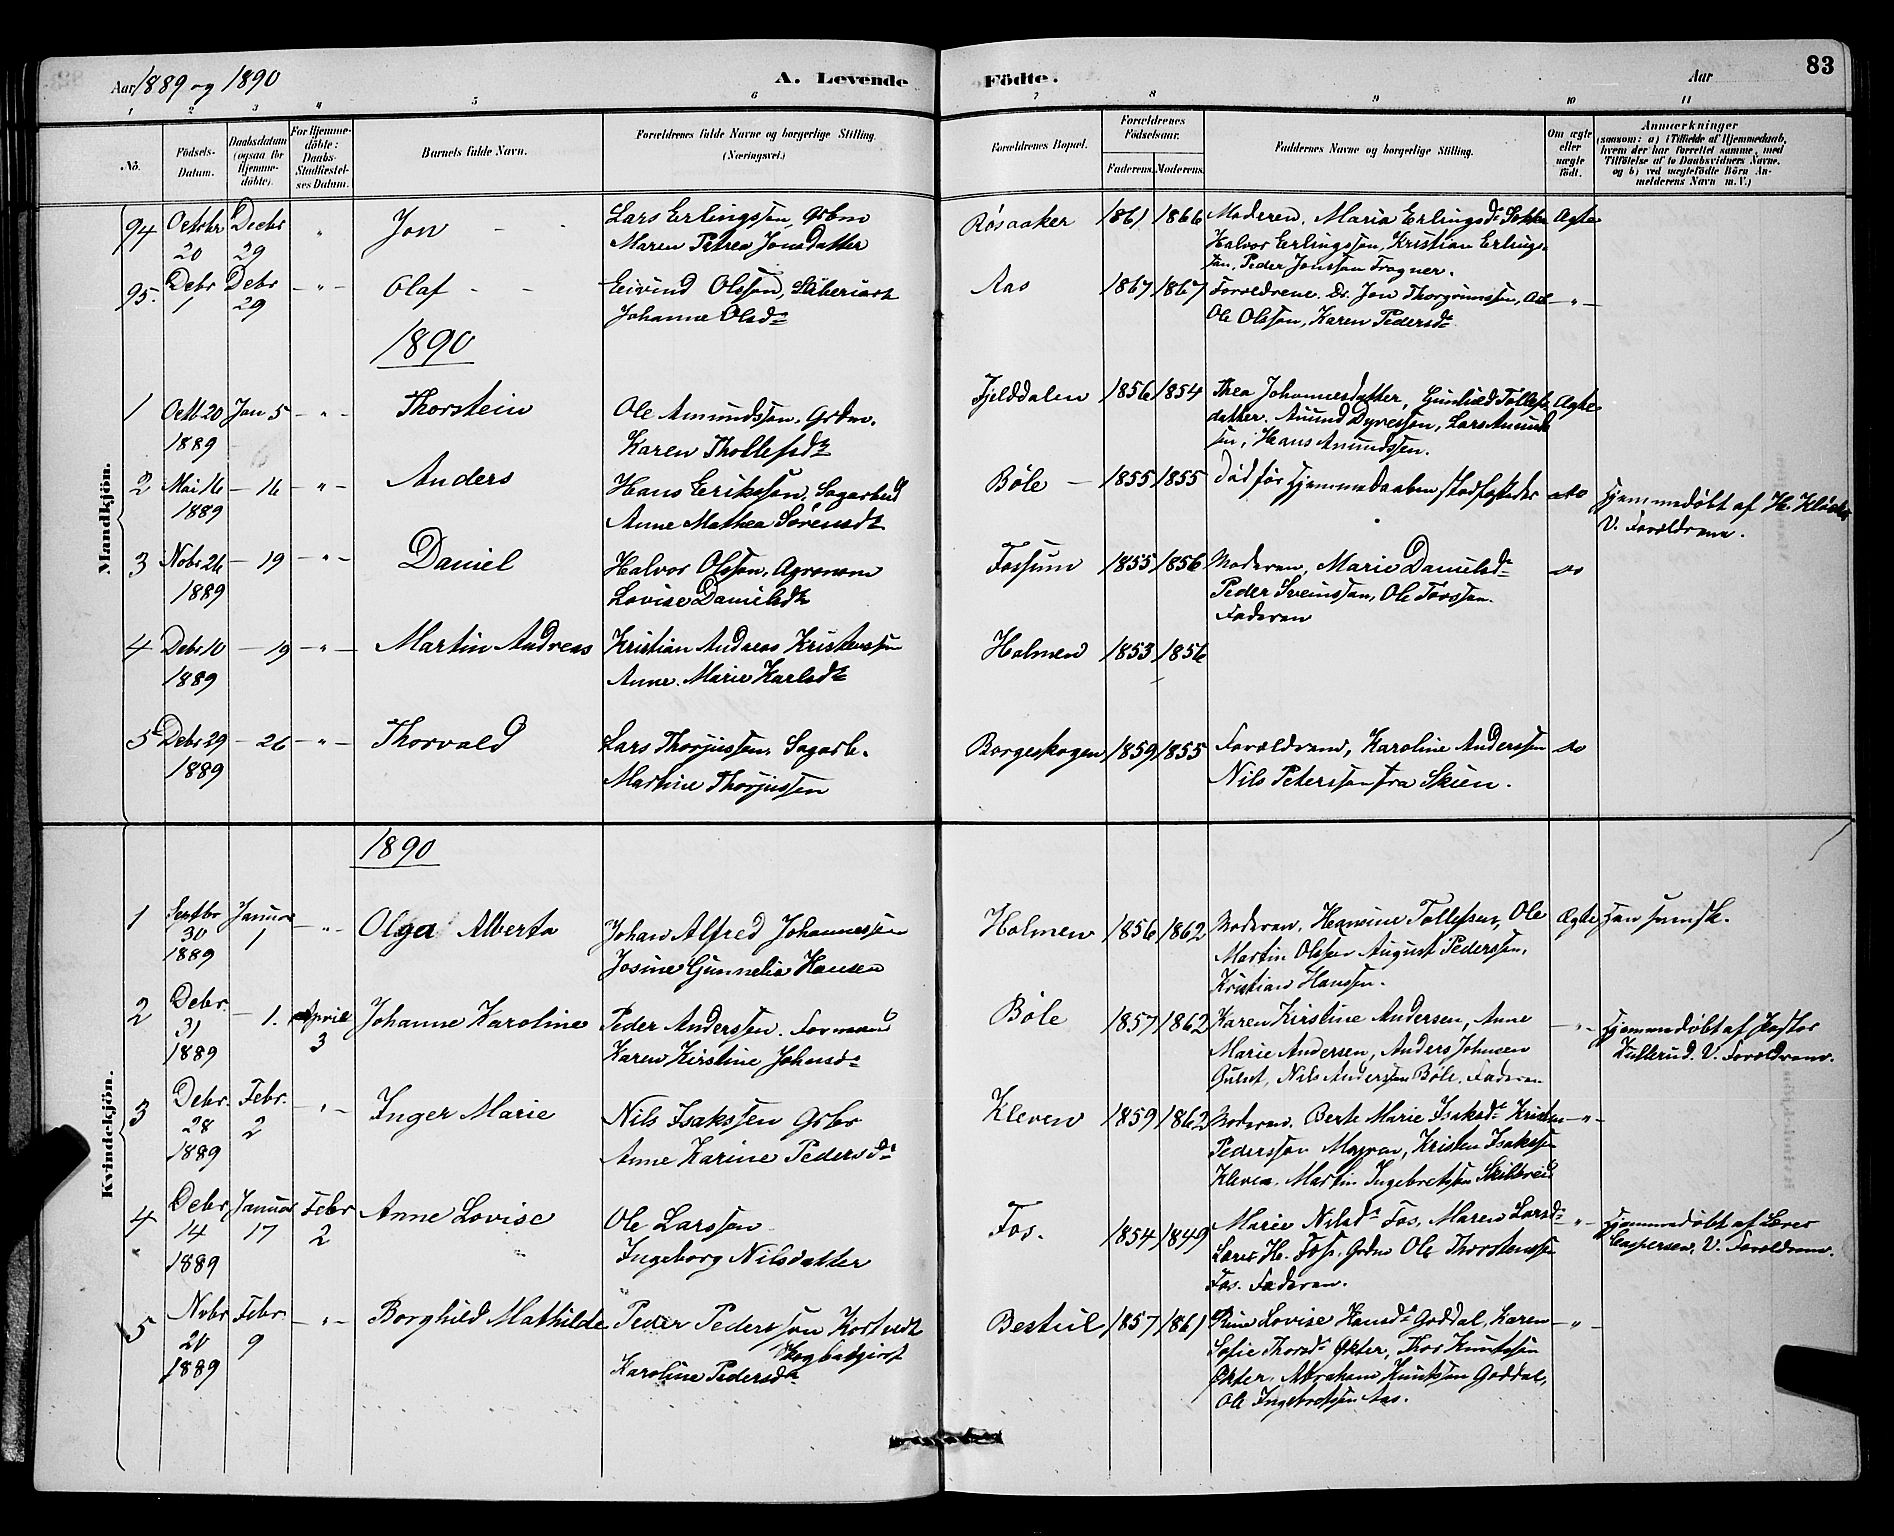 Aar 1889 og 1890
A. Levende Födte.
Aar
83
1 2 3 4 5 6 7 8 9 10 11
No.
Födsels-Datum.
Daabsdatum (ogsaa for Hjemme-döbte).
For Hjemme-döbte: Daabs-Stadfæstel-ses Datum.
Barnets fulde Navn.
Forældrenes fulde Navne og borgerlige Stilling. (Næringsvei.)
Forældrenes Bopæl.
Forældrenes Födselsaar.
Faderens. Moderens.
Faddernes Navne og borgerlige Stilling.
Om ægte eller uægte födt.
Anmærkninger
(saasom: a) i Tilfælde af Hjemmedaab, hvem der har forrettet samme, med Tilföielse af to Daabsvidners Navne, og b) ved uægtefödte Börn An-melderens Navn m. V.)
Mandkjön.
94 Octobr 20 Decbr 29 " Jon - -
Lars Erlingssen, Grbm
Maren Petrea Jonsdatter
Røsaaker 1861 1866
Moderen, Maria Erlingsd.
Halvor Erlingssen, Kristian Erlings-
sen, Peder Jonssen Fragner.
Ægte
95. Debr 1 Debr 29 - " - Olaf - -
Eivind Olssen,
Johanne Olsdr
Aas 1867 1867
Forældrene. Dr. Jon Thorgrimssen,
Ole Olssen, Karen Pedersdr
- " -
1890
1 Octb 20 1889 Jan 5 - " - Thorstein
Ole Amundssen, Grdm.
Karen Thollefsdr
Fjelddalen 1856 1854
Thea Johannesdatter, Gunhild Tollefs-
datter. Amund Dyressen, Lars Amund
sen, Hans Amundssen.
Ægte
2 Mai 16 1889 - 16 - " - Anders
Hans Erikssen, Sagarbeid
Anne Mathea Sörensdt
Bøle - 1855 1855
Død før Hjemmedaaben stadfæstedes
do
Hjemmedøbt af H.
V. Forældrene.
3 Nobr 26 1889 - 19 - " - Daniel
Halvor Olssen, Agronom
Lovise Danielsdt
Fossum 1855 1856
Moderen, Marie Danielsdr
Peder Sveinssen, Ole Torssen.
Faderen
do
4 Debr 10 1889 - 19 - " - Martin Andreas
Kristian Andreas Kristenssen
Anne. Marie Karlsdt
Holmen 1853 1856
5 Debr 29 1889 - 26 - " - Thorvald
Lars Thorjussen, Sagarb.
Martine Thorjussen
Borgeskogen 1859 1855
Forældrene, Karoline Anderssen
Nils Peterssen fra Skien.
do
Kvindekjön.
1890
1 Septbr 30 1889 Januar 1 - " - Olga Alberta
Johan Alfred Johannessen
Josine Gunnelia Hansen
Holmen 1856 1862
Moderen, Hanine Tollefsen, Ole
Martin Olssen August Pederssen,
Kristian Hanssen.
Ægte
2 Debr. 31 1889 - 1. April 3 Johanne Karoline
Peder Anderssen. Formand
Karen Kirstine Johnsdr
Bøle 1857 1862
Karen Kirstine Andersen, Anne
Marie Andersen, Anders Johnsen
Nils Anderssen Bøle, Faderen
- " -
Hjemmedøbt af Pastor
V. Forældrene.
3 Debr. 28 1889 Febr. 2 - " - Inger Marie
Nils Isakssen Grbr
Anne Karine Pedersdr
Kleven 1859 1862
Moderen, Berte Marie Isaksdr Kristen
Pederssen Kristen Isakssen
Kleven. Martin Ingebretssen
- " -
4 Debr. 14 1889 Januar 17 Febr 2 Anne Lovise
Ole Larssen
Ingeborg Nilsdatter
Fos. 1854 1849
Marie Nilsdr Fos, Maren Larsdr
Lars H. Foss. Grdm Ole Thorstenssen
Fos. Faderen.
" -
Hjemmedøbt af Lærer
Caspersen, V. Forældrene.
5 Nobr 20 1889 Febr. 9 - " - Borghild Mathilde
Peder Pederssen Kortvedt
Karoline Pedersdr
Bestul 1857 1861
Rine Lovise Hansdr Goddal, Karen
Sofie Thorsdr Økter, Thor Knutssen
Økter, Abraham Knutssen Goddal,
Ole Ingebretssen Aas.
- " -